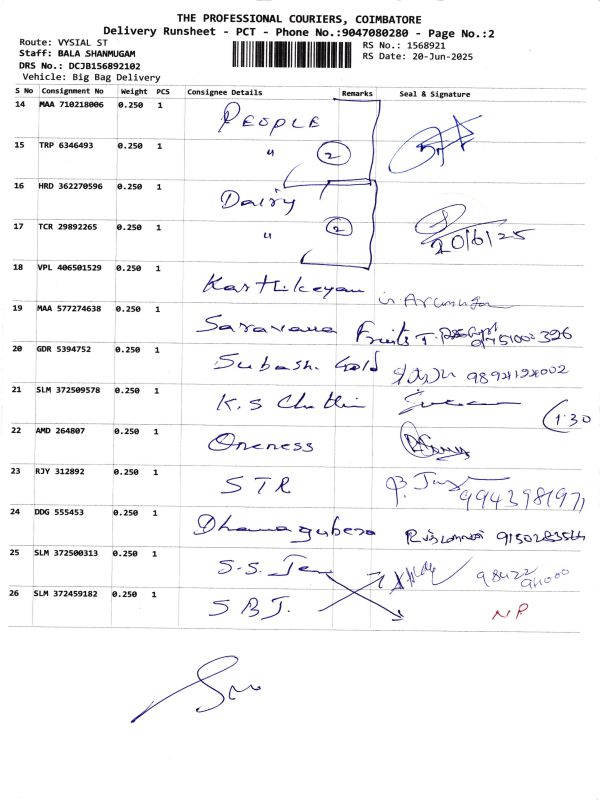 THE PROFESSIONAL COURIERS, COIMBATORE
Delivery Runsheet - PCT - Phone No.:9047080280 - Page No.:2
Route: VYSIAL ST
Staff: BALA SHANMUGAM
DRS No.: DCJB156892102
Vehicle: Big Bag Delivery
RS No.: 1568921
RS Date: 20-Jun-2025
S No Consignment No Weight PCS Consignee Details Remarks Seal & Signature
14 MAA 710218006 0.250 1 PEOPLE
15 TRP 6346493 0.250 1 " 2
16 HRD 362270596 0.250 1 Dairy
17 TCR 29892265 0.250 1 " 2 20/6/25
18 VPL 406501529 0.250 1 Karthikeyan
19 MAA 577274638 0.250 1 Saravana Fruits
20 GDR 5394752 0.250 1 Subash Gold
21 SLM 372509578 0.250 1 K.S 1:30
22 AMD 264807 0.250 1 Oneness
23 RJY 312892 0.250 1 STR 9943981971
24 DDG 555453 0.250 1
25 SLM 372500313 0.250 1 S.S. 98422
26 SLM 372459182 0.250 1 NP